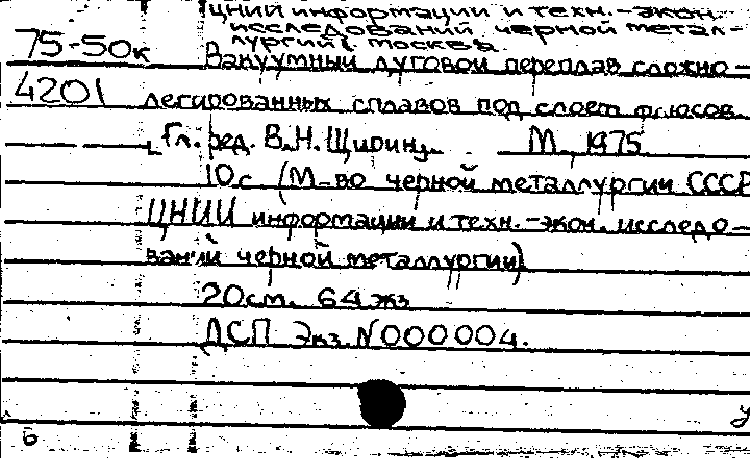 ЦНИИ информации и техн.-экон.
исследований черной метал-
лургии г. Москва
75-50к Вакуумный дуговой переплав сложно-
4201 легированных сплавов под слоем флюсов.
Гл. ред. В.Н. Щирин. М, 1975
10с. (М-во черной металлургии СССР
ЦНИИ информации и техн.-экон. исследо-
ваний черной металлургии)
20см. 64 экз
ДСП Экз N000004.
у
Б